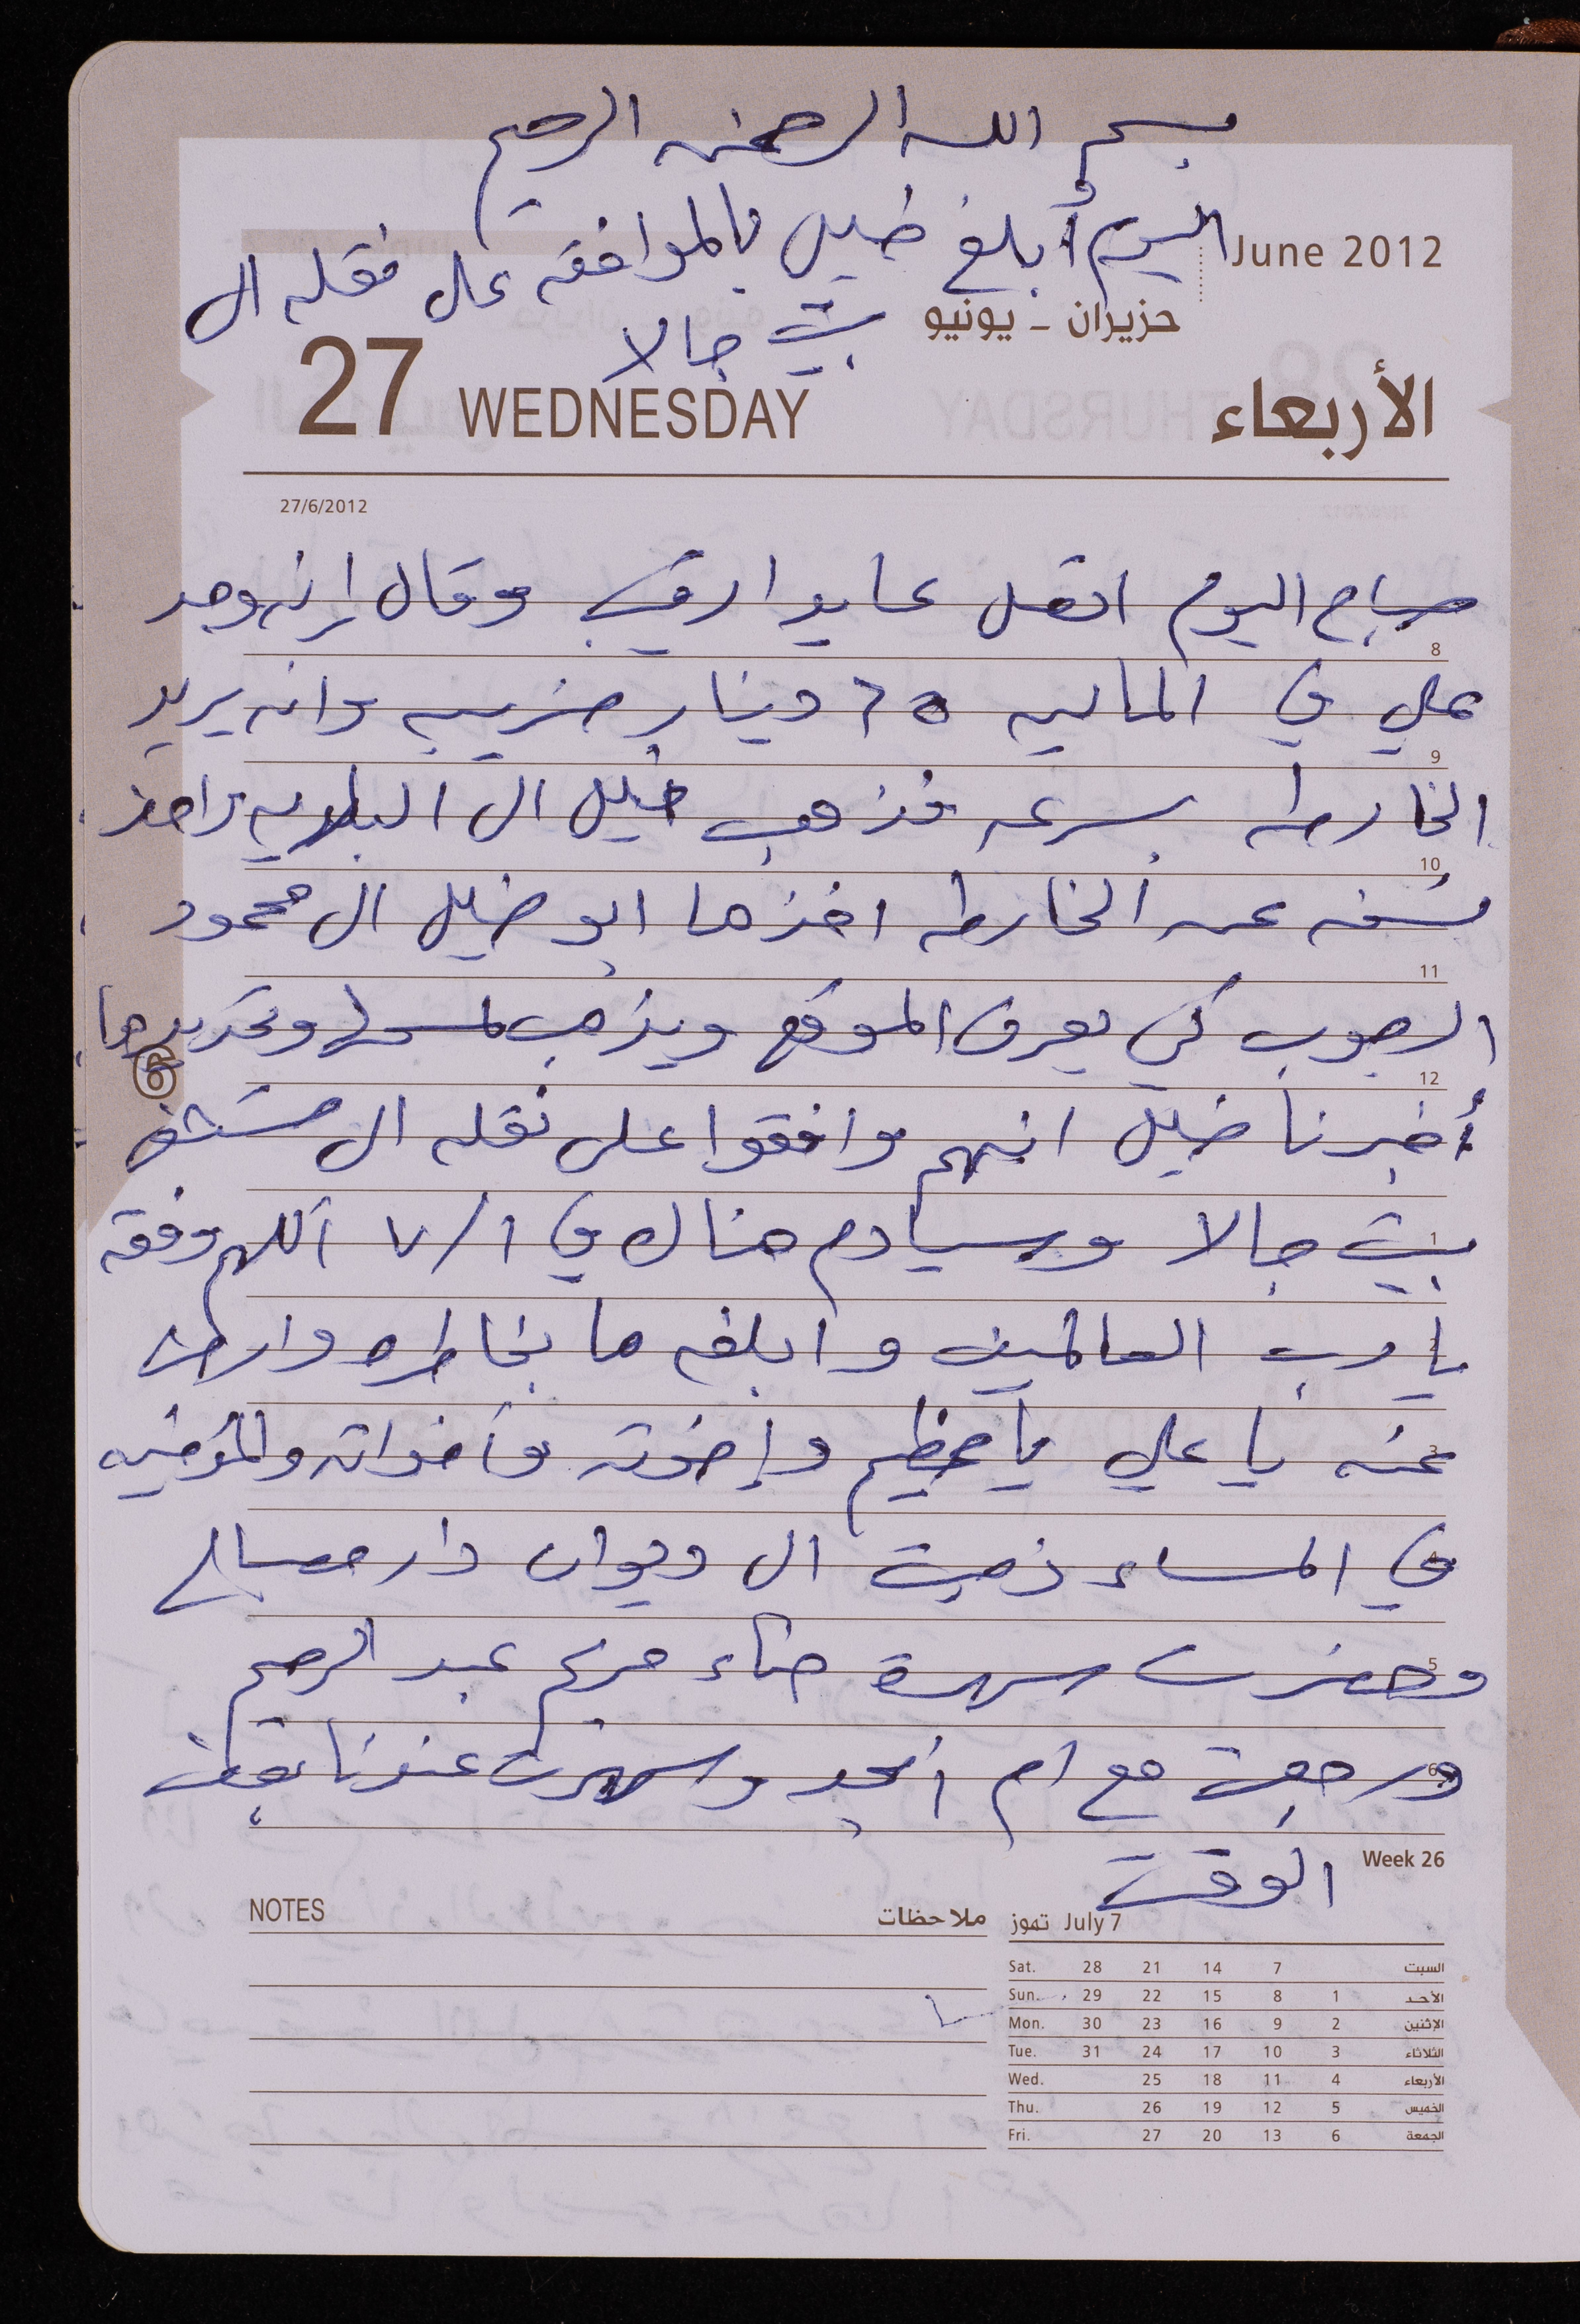 بسم الله الرحمن الرحيم
اليوم أُبلغ خليل بالموافقه على نقله الى
بيت جالا
June 2012
حزيران - يونيو
27 WEDNESDAY
الأربعاء
27/6/2012
صباح اليوم اتصل عايد وقال إنه وجد
علي في الماليه ٦٥ دينار ضريبه وانه يريد
الخارطه بسرعه فذهب خليل الى البلديه واحضر
نسخه عن الخارطه اخذها ابو خليل الى محمود
الرجوب كي يعرف الموقع ويذهب لمسحها وتحديدها
أخبرنا خليل انهم وافقوا على نقله الى مستشفى
بيت جالا وسيداوم هناك في ٧/١ اللهم وفقه
يا رب العالمين وابلغه ما بخاطره وارض
عنه يا علي يا عظيم وإخوته وأخواته والمؤمنين
في المساء ذهبت الى ديوان دار مسالم
وحضرت سهرة حناء مريم عبد الرحيم
ورجعت مع ام امجد وسهرت عندنا بعض
الوقت
8
9
10
11
12
1
3
4
5
6
6
Week 26
NOTES
ملاحظات
تموز July 7
Sat. 28 21 14 7 السبت
Sun. 29 22 15 8 1 الأحد
Mon. 30 23 16 9 2 الإثنين
Tue. 31 24 17 10 3 الثلاثاء
Wed. 25 18 11 4 الأربعاء
Thu. 26 19 12 5 الخميس
Fri. 27 20 13 6 الجمعة